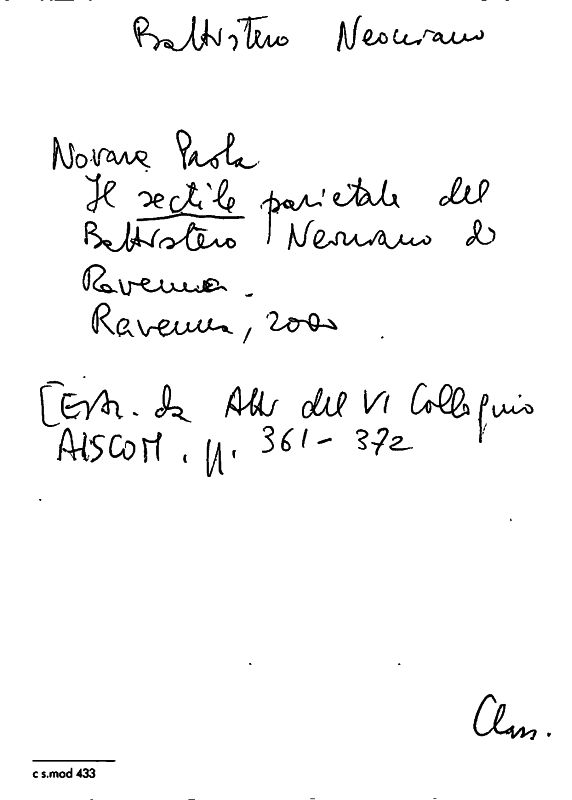 Battistero Neoniano
Novara Paola
Il sectile parietale del
Battistero Neoniano di
Ravenna.
Ravenna, 2000
[Estr. da Atti del VI Colloquio
AISCOM. pp. 361-372
Class.
c s.mod 433